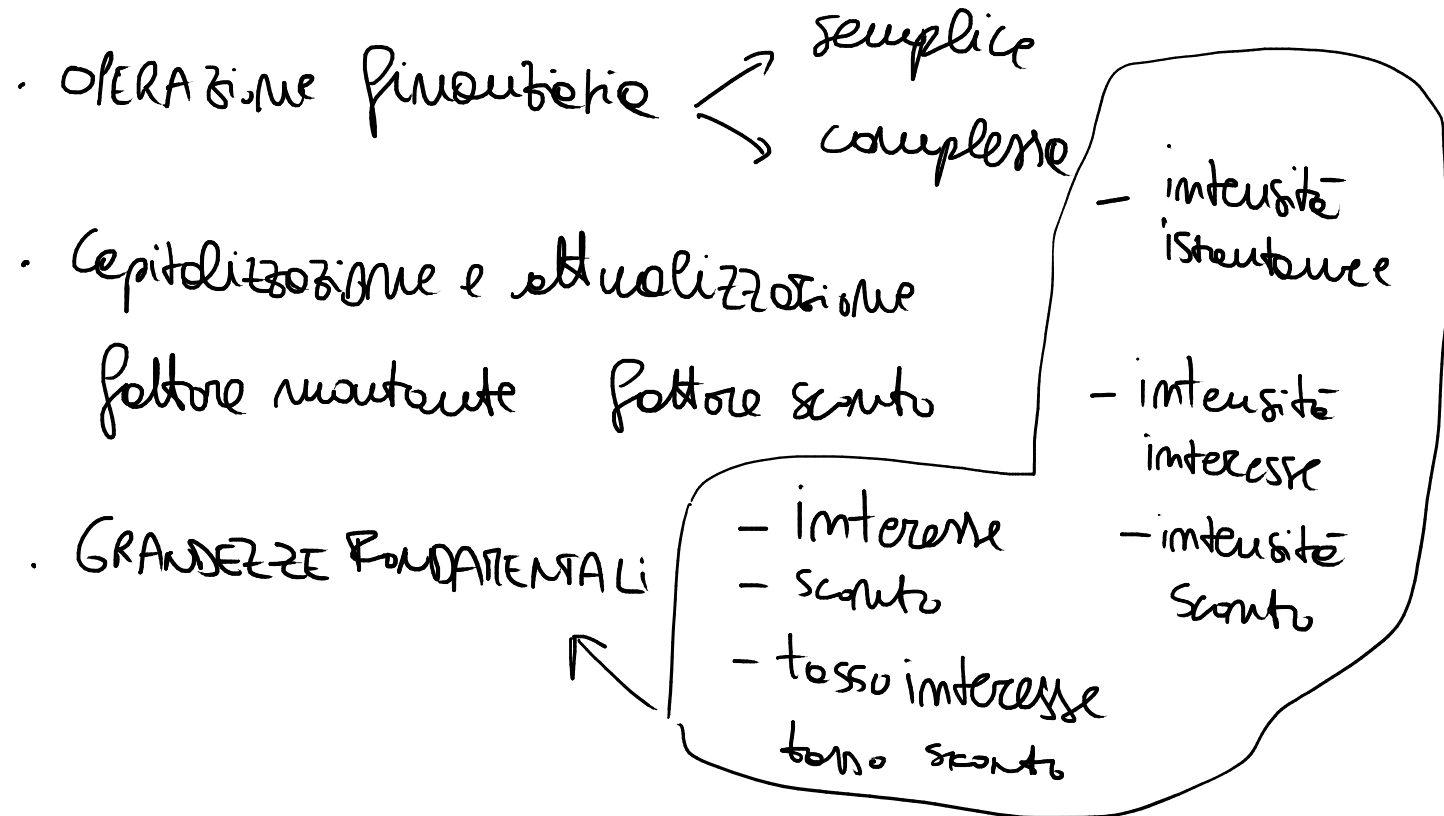 semplice
. OPERAZione finanziaria
complessa
. Capitalizzazione e attualizzazione
fattore montante fattore sconto
. GRANDEZZE FONDAMENTALi
- interesse
- sconto
- tasso interesse
tasso sconto
- intensità
istantanea
- intensità
interesse
- intensità
sconto